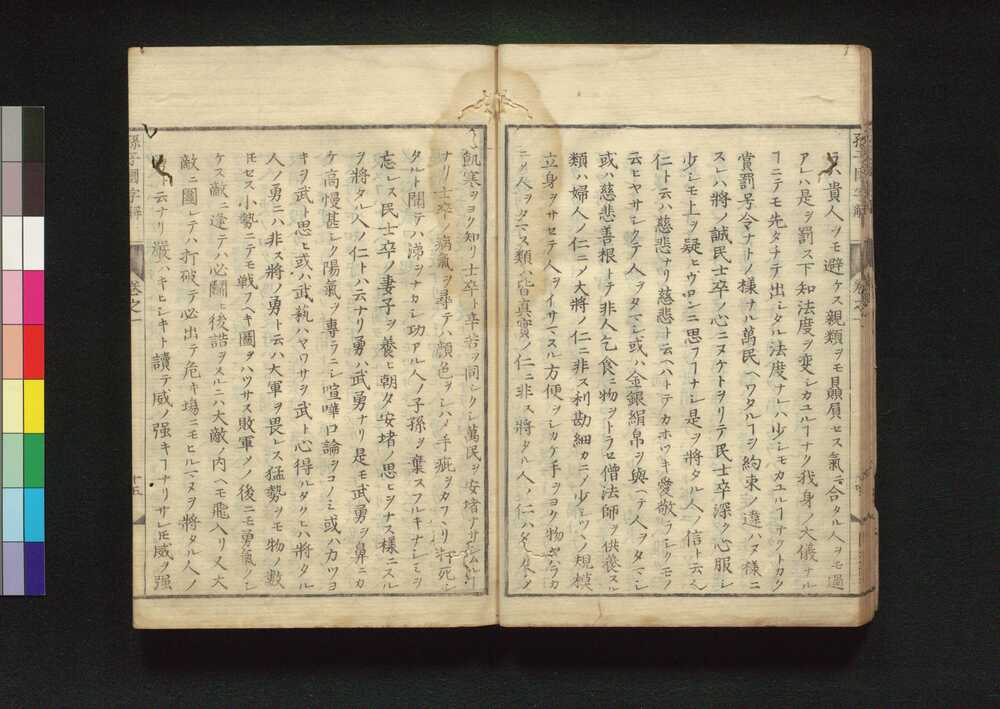 ラス貴人ヲモ避ケス親類ヲモ贔屓セス氣ニ合タル人ヲモ過
アレハ是ヲ罰ス下知法度ヲ変シカユルヿナク我身ノ大儀ナル
ヿニテモ先タチテ出シタル法度ナレハ少シモカユルヿナクトカク
賞罰号令ナトノ様ナル萬民ヘワタルヿヲ約束ノ違ハヌ様ニ
スレハ將ノ誠民士卒ノ心ニヌケトヲリテ民士卒深ク心服シ
少シモ上ヲ疑ヒウロンニ思フヿナシ是ヲ將タル人ノ信ト云ヘシ
仁ト云ハ慈悲ナリ慈悲ト云ヘハトテカホウキ愛敬ラシクモノ
云ヒヤサシクテ人ヲタマシ或ハ金銀絹帛ヲ與ヘテ人ヲタマシ
或ハ慈悲善根トテ非人乞食ニ物ヲトラセ僧法師ヲ供養スル
類ハ婦人ノ仁ニノ大將ノ仁ニ非ス利勘細カニノ少シツヽノ規模
立身ヲサセテ人ヲイサマスル方便ヲシカケ手ヲヨク物
ニノ人ヲタマス類ハ皆真實ノ仁ニ非ス將タル人ノ仁ハ
飢寒ヲヨク知リ士卒ト辛苦ヲ同シクシ萬民ヲ安堵ナサシムル
ナリ士卒ノ病氣ヲ尋テハ顔色ヲシハメ手疵ヲカフリ打死シ
タルト聞テハ涕ヲナカシ功アル人ノ子孫ヲ棄スフルキナシミヲ
忘レス民士卒ノ妻子ヲ養ヒ朝タ安堵ノ思ヒヲナス様ニスル
ヲ將タル人ノ仁トハ云ナリ勇ハ武勇ナリ是モ武勇ヲ鼻ニカ
ケ高慢甚シク陽氣ヲ專ラニシ喧嘩口論ヲコノミ或ハカツヨ
キヲ武ト思ヒ或ハ武藝ハヤワサヲ武ト心得ルタクヒハ將タル
人ノ勇ニハ非ス將ノ勇ト云ハ大軍ヲ畏レス猛勢ヲモ物ノ數
トモセス小勢ニテモ戰フヘキ圖ヲハツサス敗軍ノ後ニモ勇氣ノシ
ケス敵ニ逢テハ必鬪ヒ後詰ヲスルニハ大敵ノ内ヘモ飛入リ又大
敵ニ圍レテハ打破テ必出テ危キ塲ニモヒルマヌヲ將タル人ノ
勇ト云ナリ嚴ハキヒシキト讀テ威ノ强キヿナリサレモ威ヲ强
孫子國字解
卷之一
十五